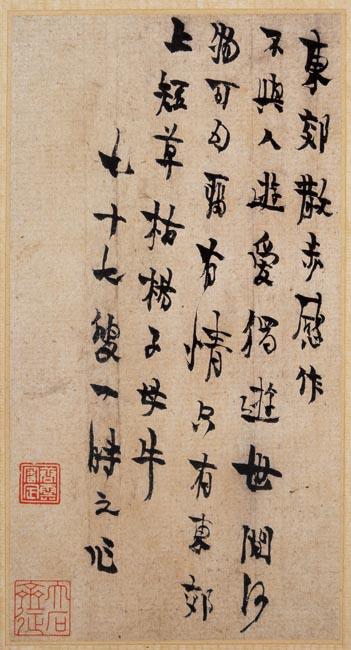 東郊散步感作
不與人遊愛獨遊世間何
物可勾留有情只有東郊
上短草枯楊子母牛
七十七叟一時之作